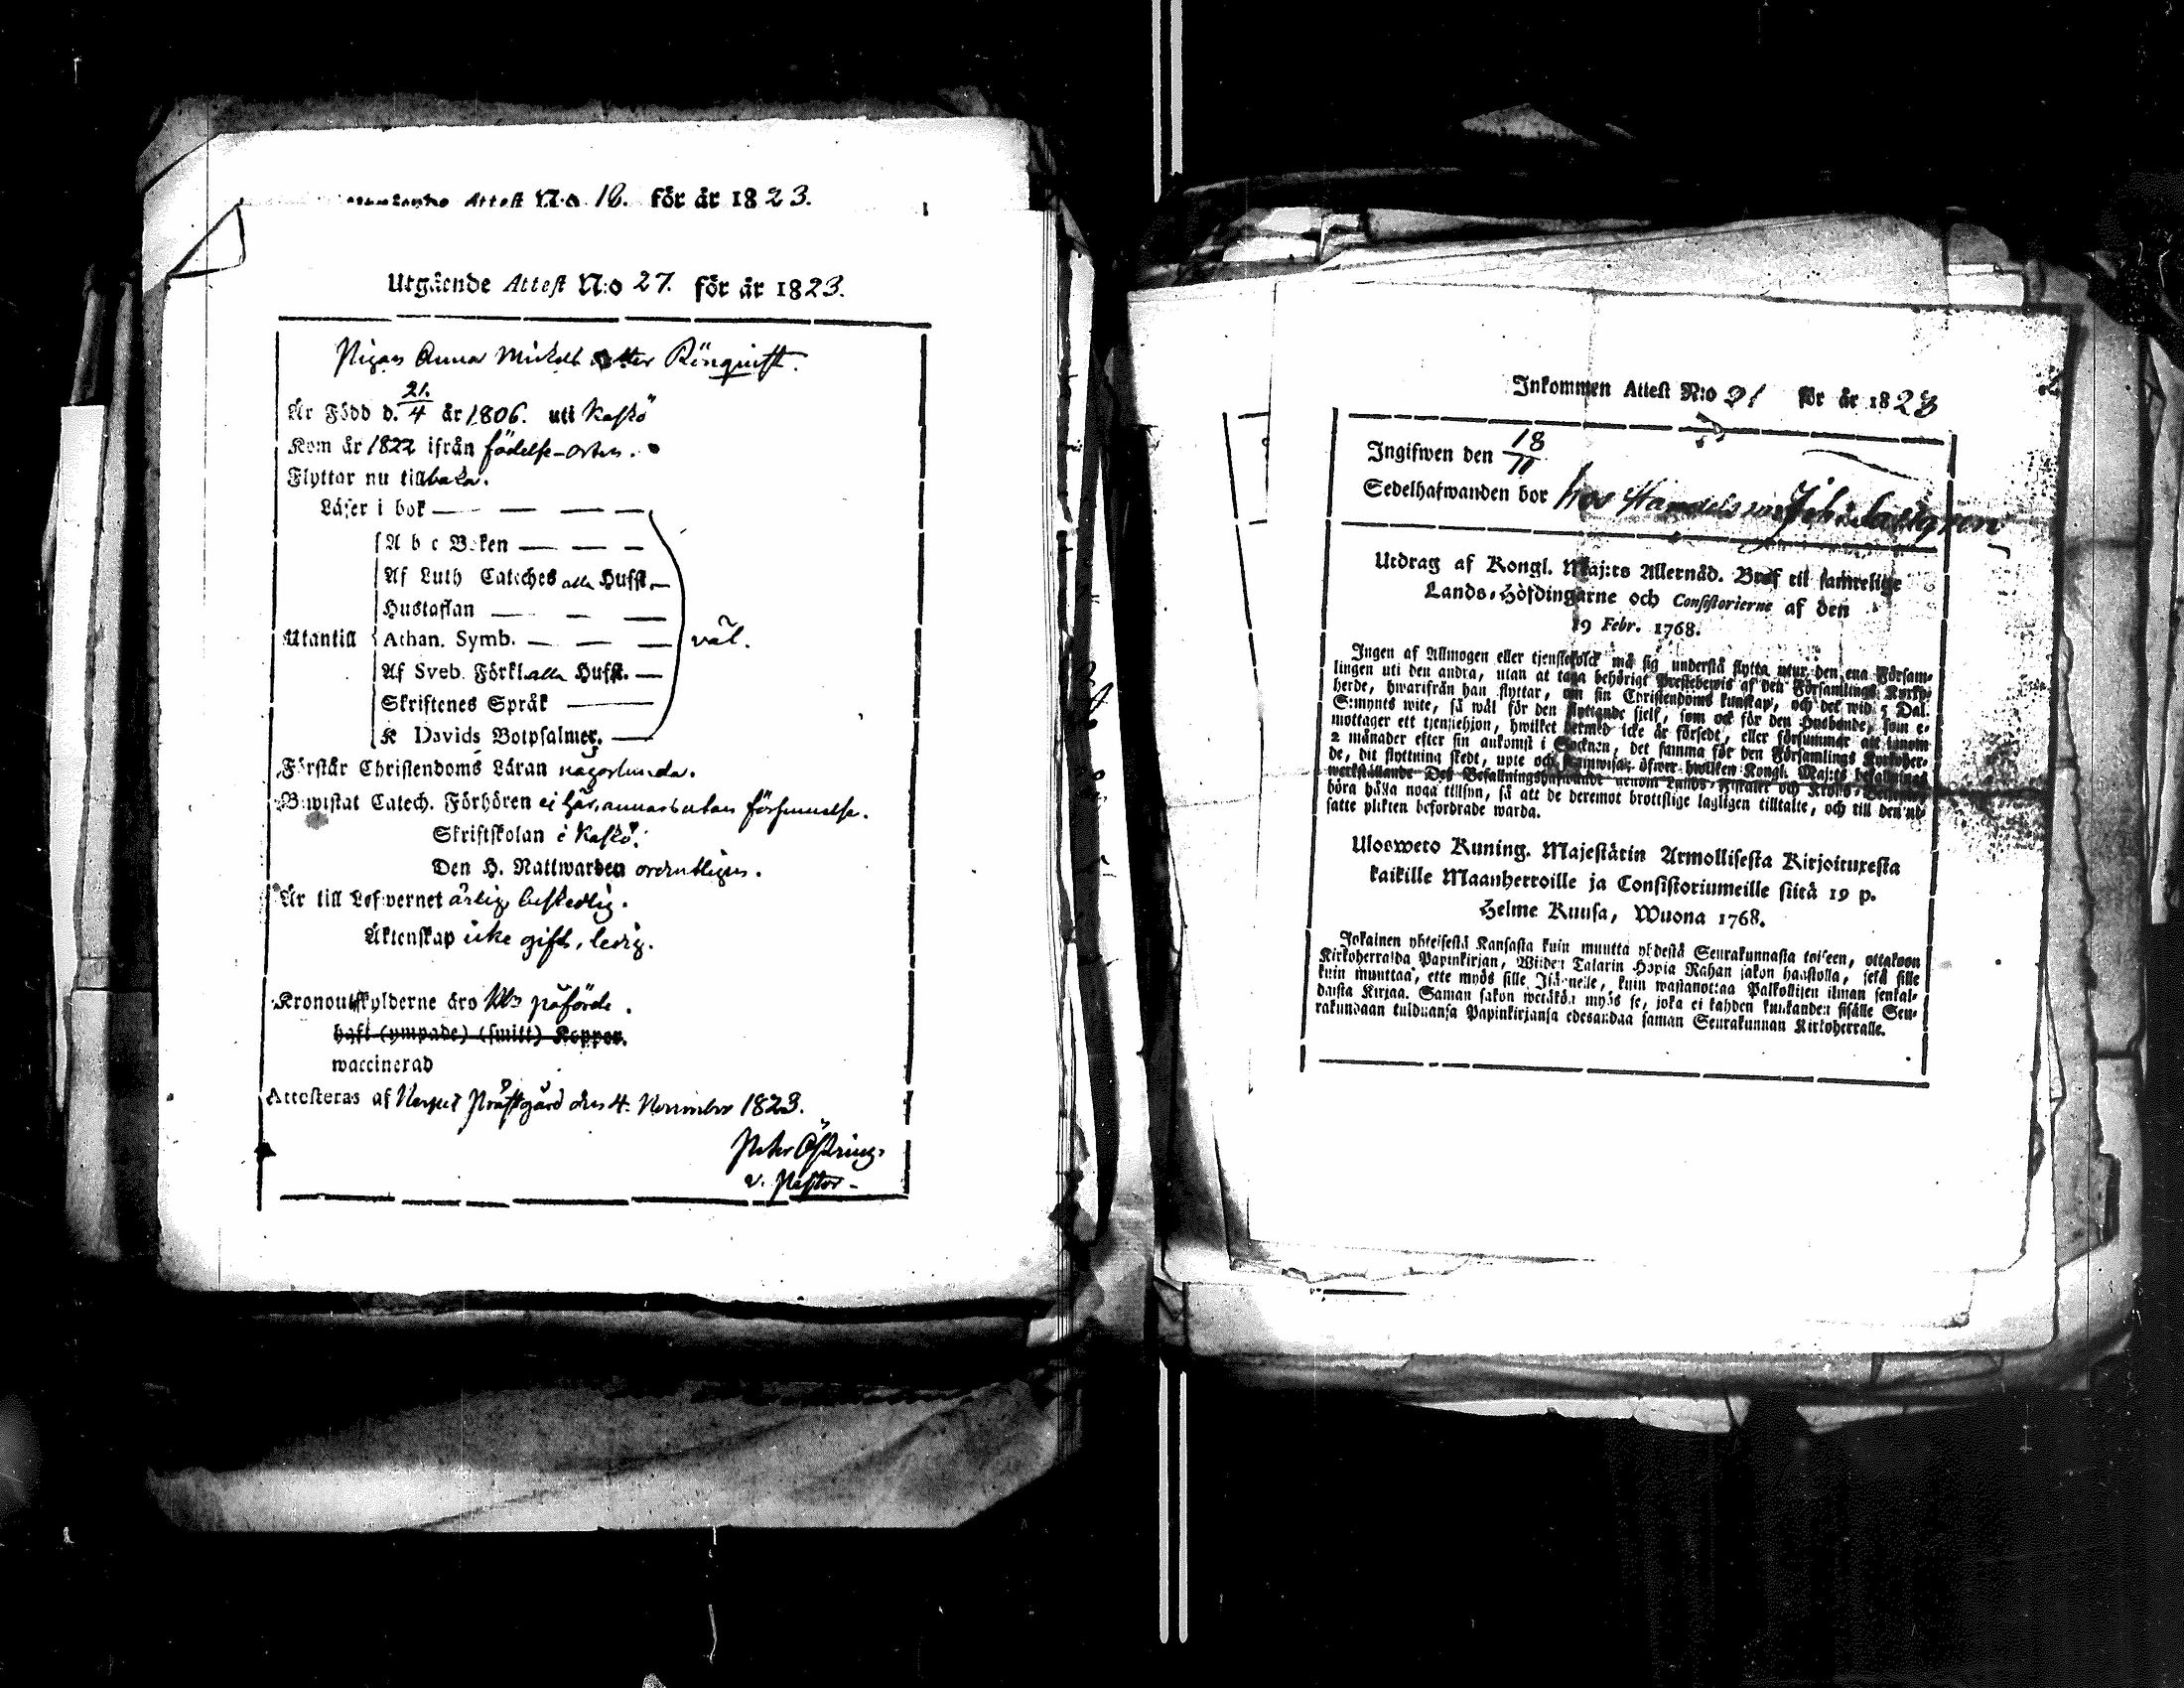 Attest N:o 18. för år 1823.
Utgående Attest N:o 27. för år 1823.
Pigan Anna Mickels dotter Rönquist.
Är Född d. 21/4 år 1806. uti Kaskö
Kom år 1822 ifrån födelse-orten.
Flyttar nu tillbaka.
Läser i bok
A b c Boken
Af Luth Cateches alla Hufst.
Hustaflan
Utantill Athan. Symb. väl.
Af Sveb. Förkl. alla Hufst.
Skriftenes Språk
K Davids Botpsalmer.
Förstår Christendoms Läran någorlunda.
Bewistat Catech. Förhören ej här, annars utan försummelse.
Skriftskolan i Kaskö.
Den H. Nattwarden ordentligen.
Är till Lefwernet ärlig, beskedlig.
Äktenskap icke gift, ledig.
Kronoutskylderne äro påförde.
haft (ympade) (smitt) Koppor.
waccinerad
Attesteras af Nerpes Prästgård den 4. November 1823.
Petr Östring.
v. Pastor
Inkommen Attest N:o 31 för år 1823
Ingifwen den 18/11
Sedelhafwanden bor hos Handelsm
Utdrag af Kongl. Maj:ts Allernåd. Bref til samtelige
Lands-Höfdingarne och Consistorierne af den
19 Febr. 1768.
Ingen af Allmogen eller tjenstefolck må sig understå flytta utur den ena Försam-
lingen uti den andra, utan at taga behörigt Prestebewis af den Församlings Kyrko-
herde, hwarifrån han flyttar, om sin Christendoms kunskap, och det wid 5 Dal.
S:mynts wite, så wäl för den flyttande sjelf, som ock för den Husbonde, som e-
mottager ett tjenstehjon, hwilket dermed icke är försedt, eller försummar att innom
2 månader efter sin ankomst i Socknen, det samma för den Församlings Kyrkoher-
de, dit flyttning skedt, upte och framwisa; öfwer hwilken Kongl. Maj:ts befallnings
werkställande Des Befallningshafwande genom Lands-Fiscaler och Krono-Betjening
böra hålla noga tillsyn, så att de deremot brottslige lagligen tilltalte, och till den ut-
satte plikten befordrade warda.
Ulosweto Kuning. Majestätin Armollisesta Kirjoituxesta
kaikille Maanherroille ja Consistoriumeille siitä 19 p.
Helme Kuusa, Wuona 1768.
Jokainen yhteisestä Kansasta kuin muutta yhdestä Seurakunnasta toiseen, ottakoon
Kirkoherralda Papinkirjan, Wiiden Talarin Hopia Rahan sakon haastolla, sekä sille
kuin muuttaa, ette myös sille Isännelle, kuin wastanottaa Palkollisen ilman senkal-
daista Kirjaa. Saman sakon wetäkön myös se, joka ei kahden kuukauden sisälle Seu-
rakundaan tulduansa Papinkirjansa edesandaa saman Seurakunnan Kirkoherralle.